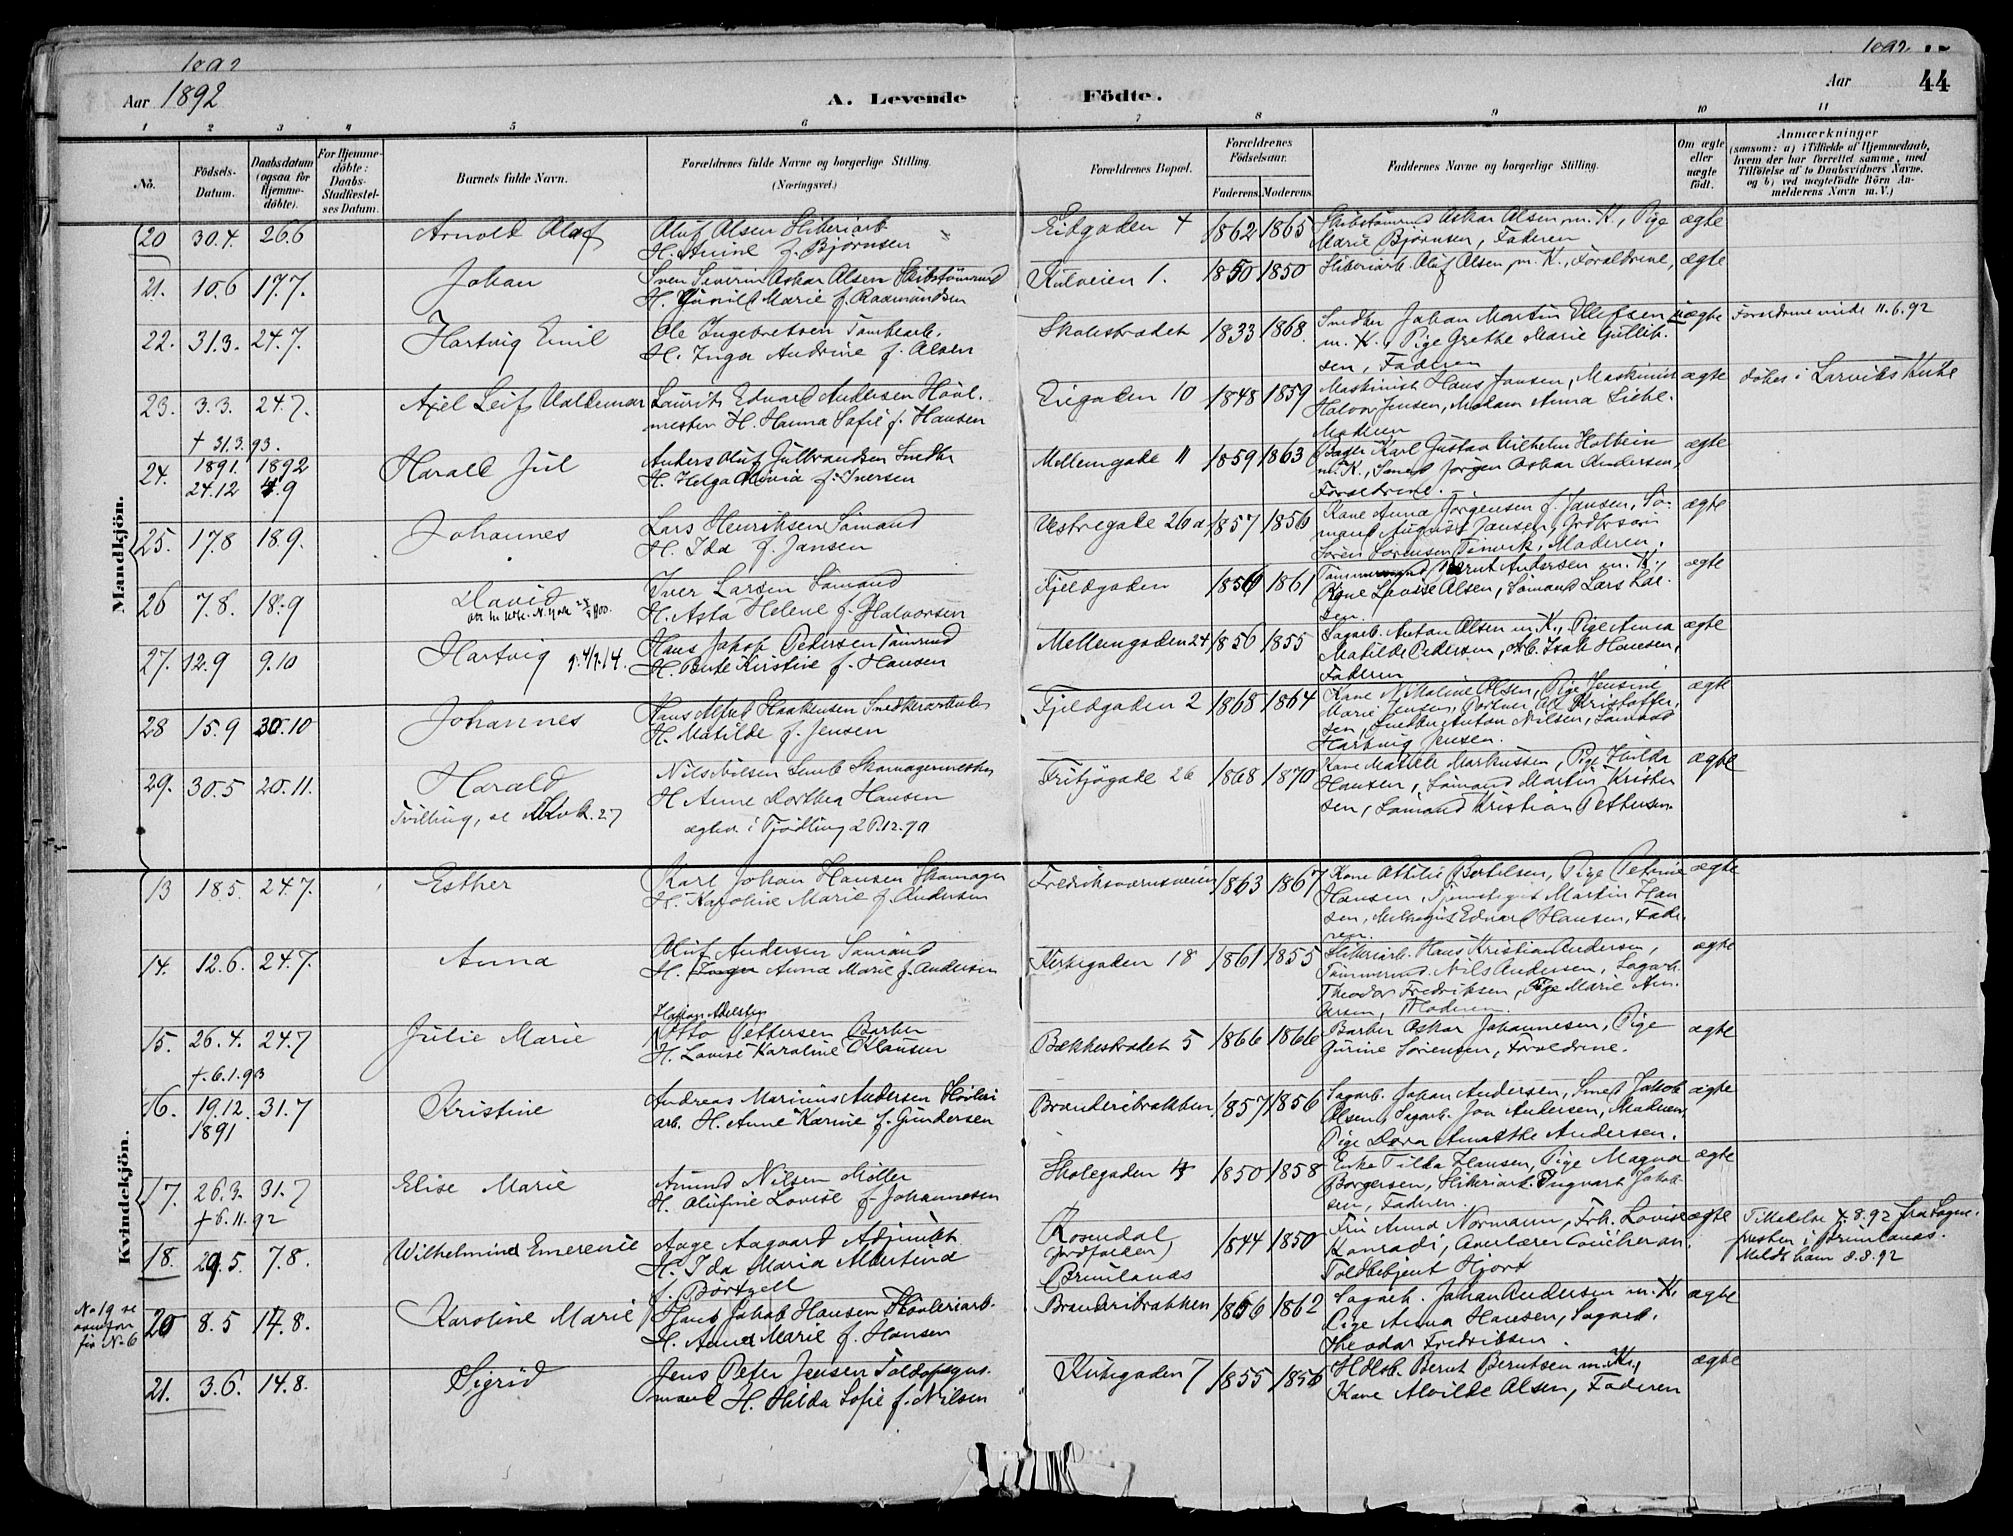 1892
1892
44
Aar 1892
A. Levende Födte.
Aar
1 2 3 4 5 6 7 8 9 10 11
No.
Födsels-Datum.
Daabsdatum (ogsaa for Hjemme-döbte).
For Hjemme-döbte: Daabs-Stadfæstel-ses Datum.
Barnets fulde Navn.
Forældrenes fulde Navne og borgerlige Stilling. (Næringsvei.)
Forældrenes Bopæl.
Forældrenes Födselsaar.
Faderens. Moderens.
Faddernes Navne og borgerlige Stilling.
Om ægte eller uægte födt.
Anmærkninger
(saasom: a) i Tilfælde af Hjemmedaab, hvem der har forrettet samme, med Tilföielse af to Daabsvidners Navne, og b) ved uægtefödte Börn An-melderens Navn m. V.)
Mandkjön.
20 30.4. 26.6 Arnold Olaf
Oluf Olsen Sliberiarb.
H. Anine f. Bjørnsen
Eidgaden 4 1862 1865
Skibstömmd Oskar Olsen m. K., Pige
Marie Bjørnsen, Faderen
ægte
21. 10.6 17.7. Johan
Sven Severin Oskar Olsen Skibstömmd
H. Gunild Marie f. Raamundsen
1. 1850 1850
Sliberiarb. Oluf Olsen m. K., Forældrene,
ægte
22. 31.3. 24.7. Hartvig Emil
Ole Ingebretsen Tomtearb.
H. Inga Andrine f. Olsen
Skolestrædet 1833 1868.
Snedker Johan Martin Ellefsen
m. K., Pige Grethe Marie Gullik-
sen, Faderen
uægte
Forældrene viede 11.6.92
23. 3.3. 24.7. Axel Leif Valdemar
† 31.3.93.
Laurits Edvard Andersen Høvl.
mester H. Hanna Sofie f. Hansen
Eiegaden 10 1848 1859
Maskinist Hans Jansen, Maskinist
Halvor Jensen, Madam Anna Liebe.
Moderen
ægte
døbes i Larviks Kirke
24. 1891. 24.12 1892 4.9 Harald Jul
Anders Oluf Gulbrandsen Snedkr
H. Helga Olivia f. Iversen
Mellemgade 11 1859 1863
Bager Karl Gustav Wilhelm Holtein
m. K., Smed Jørgen Oskar Andersen,
Forældrene.
ægte
25. 17.8 18.9. Johannes
Lars Henriksen Sömand
H. Ida f. Jansen
Vestregade 26a 1857 1856
Kone Anna Jörgensen f. Jansen, Sö-
mand August Jansen,
Søren Sørensen, Moderen.
ægte
26 7.8. 18.9 David
Iver Larsen Sömand
H. Asta Helene f. Halvorsen
Fjeldgaden 1856 1861
Tömmermand Bernt Andersen m. K.,
Kone Lovise Olsen, Sömand Lars Lar-
sen.
ægte
27. 12.9 9.10 Hartvig
Hans Jakob Pedersen Tömmd
H. Berte Kirstine f. Hansen
Mellemgaden 24 1856 1855
Sagarb. Anton Olsen m. K., Pige Anna
Matilde Pedersen, Isak Hansen,
Faderen
ægte
28 15.9 30.10 Johannes
Hans Alfred Haakensen Snedkerarbeider
H. Matilde f. Jensen
Fjeldgaden 2 1868 1864
Kone Nikoline Olsen, Pige Jensine
Marie Jensen, Portner Ole Kristoffer-
sen, Snedkr Anton Nilsen, Sömand
Hartvig Jensen.
ægte
29. 30.5 20.11. Harald
Tvilling, se
Nils Nilsen Lund Skomagermester
H Anne Dorthea Hansen
ægtev. i Tjødling 28.12.90
Fritjögade 26 1868 1870
Kone Matilde Markussen, Pige Hulda
Hansen, Sömand Martin Kristen-
sen, Sömand Kristian Pettersen
ægte
Kvindekjön.
13 18.5. 24.7. Esther
Karl Johan Hansen Skomager
H. Karoline Marie f. Andersen
Fredriksværnsveien 1863 1867
Kone Ottilie Bertelsen, Pige Petrine
Hansen, Martin Han-
sen, Edvard Hansen, Fade-
ren
ægte
14. 12.6. 24.7. Anna
Oluf Andersen Sömand
H. Anna Marie f. Andersen
Kirkegaden 18 1861 1855
Sliberiarb. Hans Kristian Andersen,
Tömmermd. Nils Andersen, Sagarb.
Theodor Fredriksen, Pige Marie An-
dersen, Moderen.
ægte
15. 26.4. 24.7 Julie Marie
† 6.1.93
Otto Pettersen Barber
H. Lovise Karoline Klausen
Bækkestrædet 5 1866 1866
Barber Oskar Johannesen, Pige
Gurine Sørensen, Forældrene.
ægte
16. 19.12. 1891 31.7 Kristine
Andreas Marinius Andersen Høvleri
arb. H. Anne Karine f. Gundersen
Brænderibakken 1857 1856
Sagarb. Johan Andersen, Smed Jakob
Olsen, Sagarb. Jon Andersen, Moderen,
Pige Dora Amatthe Andersen.
ægte
17. 26.3. 31.7 Elise Marie
† 6.11.92
Amund Nilsen Møller
H. Olufine Lovise f. Johannesen
Skolegaden 4 1850 1858
Enke Tilda Hansen, Pige Magna
Borgersen, Sliberiarb. Ingvart Jakob-
sen, Faderen.
ægte
18. 29.5. 7.8. Wilhelmine Emerenze
Aage Aagaard Adjunkt
H. Ida Maria Martina
f. Börtzell
Rosendal
Brunlanæs
1844 1850
Fru Anna Normann, Frk. Lovise
Konradi, Overlærer Coucheron
Toldbetjent Hjort
ægte
Tilladelse 4.8.92 fra Sogne-
presten i Brunlanæs.
Meldt ham 8.8.92
No 19 se
før No 6
20 8.5 14.8. Karoline Marie
Hans Jakob Hansen Høvleriarb.
H. Anne Marie f. Hansen
Brænderibakken 1856 1862
Sagarb. Johan Andersen m. K.
Pige Anna Hansen, Sagarb.
Theodor Fredriksen.
ægte
21. 3.6. 14.8. Sigrid
Jens Peter Jensen Toldopsyns-
mand H. Hilda Sofie f. Nilsen
Kirkegaden 7 1855 1856
Bernt Berntsen m. K.,
Kone Alvilde Olsen, Faderen
ægte